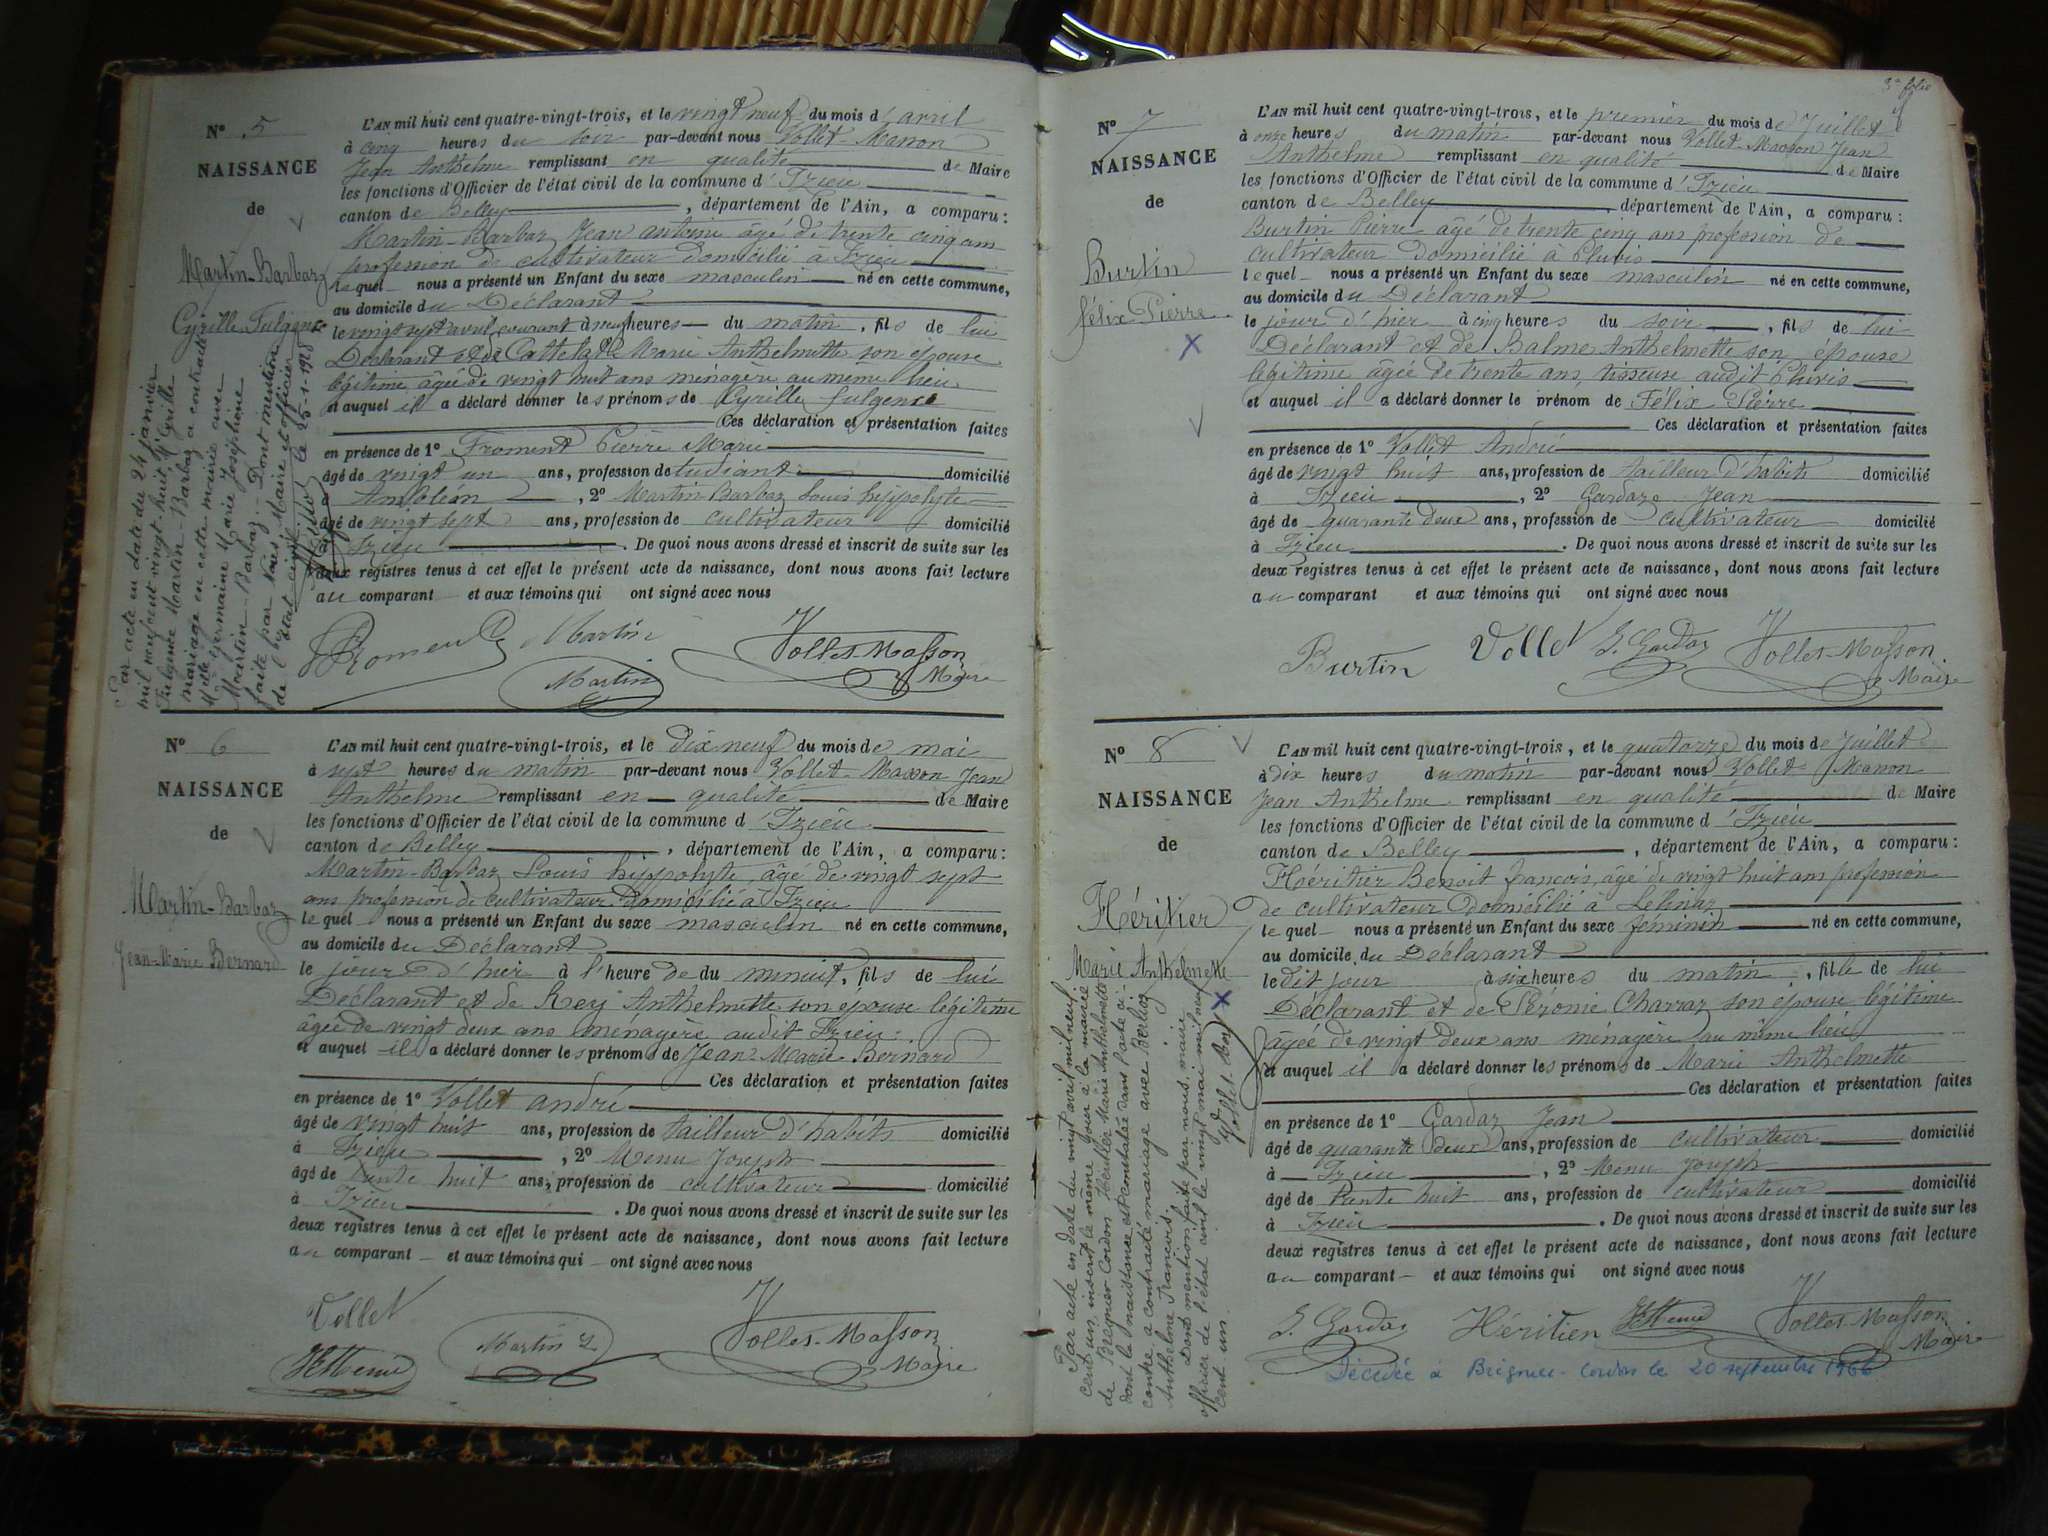 N° 5
NAISSANCE
de
Martin-Barbaz
Cyrille Fulgence
Par acte en date du 24 janvier
mil neuf cent vingt-huit Mr Cyrille
Fulgence Martin-Barbaz a contracté
mariage en cette mairie avec
Melle Germaine Marie Joséphine
Martin-Barbaz. Dont mention
faite par Nous, Maire et officier
de l'état civil le 25-1-1928
L'AN mil huit cent quatre-vingt-trois, et le vingt neuf du mois d'avril
à cinq heures du soir par-devant nous Vollet-Masson
Jean Anthelme remplissant en qualité de Maire
les fonctions d'Officier de l'état civil de la commune d'Izieu
canton de Belley, département de l'Ain, a comparu :
Martin-Barbaz Jean antoine âgé de trente cinq ans
profession de cultivateur domicilié à Izieu
lequel nous a présenté un Enfant du sexe masculin né en cette commune,
au domicile du Déclarant
le vingt sept avril courant à neuf heures du matin, fils de lui
Déclarant et de Marie Anthelmette son épouse
légitime âgée de vingt huit ans ménagère au même lieu
et auquel il a déclaré donner les prénoms de Cyrille fulgence
Ces déclaration et présentation faites
en présence de 1° Froment Pierre Marie
âgé de vingt un ans, profession de tudiant domicilié
à Ambléon, 2° Martin Barbaz Louis hyppolyte
âgé de vingt sept ans, profession de cultivateur domicilié
à Izieu. De quoi nous avons dressé et inscrit de suite sur les
deux registres tenus à cet effet le présent acte de naissance, dont nous avons fait lecture
au comparant et aux témoins qui ont signé avec nous
Froment Martin Vollet-Masson
Martin Maire
N° 6
NAISSANCE
de
Martin-Barbaz
Jean-Marie Bernard
L'AN mil huit cent quatre-vingt-trois, et le dix neuf du mois de mai
à sept heures du matin par-devant nous Vollet-Masson Jean
Anthelme remplissant en qualité de Maire
les fonctions d'Officier de l'état civil de la commune d'Izieu
canton de Belley, département de l'Ain, a comparu :
Martin-Barbaz Louis hyppolyte, âgé de vingt sept
ans profession de cultivateur Domicilié à Izieu
lequel nous a présenté un Enfant du sexe masculin né en cette commune,
au domicile du Déclarant
le jour d'hier à l'heure de du minuit, fils de lui
Déclarant et de Rey Anthelmette son epouse légitime
âgée de vingt deux ans ménagère audit Izieu
et auquel il a déclaré donner les prénoms de Jean Marie Bernard
Ces déclaration et présentation faites
en présence de 1° Vollet andré
âgé de vingt huit ans, profession de tailleur d'habits domicilié
à Izieu, 2° Menu Joseph
âgé de trente huit ans, profession de cultivateur domicilié
à Izieu. De quoi nous avons dressé et inscrit de suite sur les
deux registres tenus à cet effet le présent acte de naissance, dont nous avons fait lecture
au comparant et aux témoins qui ont signé avec nous
Vollet
Martin L Vollet-Masson
Maire
3e folio
N° 7
NAISSANCE
de
Burtin
félix Pierre
L'AN mil huit cent quatre-vingt-trois, et le premier du mois de Juillet
à onze heures du matin par-devant nous Vollet-Masson Jean
Anthelme remplissant en qualité de Maire
les fonctions d'Officier de l'état civil de la commune d'Izieu
canton de Belley département de l'Ain, a comparu :
Burtin Pierre âgé de trente cinq ans profession de
cultivateur Domicilié à
lequel nous a présenté un Enfant du sexe masculin né en cette commune,
au domicile du Déclarant
le jour d'hier à cinq heures du soir, fils de lui
Déclarant et de Balme Anthelmette son épouse
légitime âgée de trente ans, tisseuse audit
et auquel il a déclaré donner le prénom de Félix Pierre
Ces déclaration et présentation faites
en présence de 1° Vollet André
âgé de vingt huit ans, profession de tailleur d'habits domicilié
à Izieu, 2° Gardaz Jean
âgé de quarante deux ans, profession de cultivateur domicilié
à Izieu. De quoi nous avons dressé et inscrit de suite sur les
deux registres tenus à cet effet le présent acte de naissance, dont nous avons fait lecture
au comparant et aux témoins qui ont signé avec nous
Burtin Vollet Gardaz Vollet-Masson
Maire
N° 8
NAISSANCE
de
Héritier
Marie Anthelmette
Par acte en date du vingt avril mil neuf
cent un, inscrit le même jour à la mairie
de Brégnier Cordon Héritier Marie Anthelmette
dont la naissance est constatée dans l'acte ci-
contre a contracté mariage avec Berlioz
Anthelme François.
Dont mention faite par nous, maire
officier de l'état civil le vingt mai mil neuf
cent un.
L'AN mil huit cent quatre-vingt-trois, et le quatorze du mois de Juillet
à dix heures du matin par-devant nous Vollet Masson
Jean Anthelme remplissant en qualité de Maire
les fonctions d'Officier de l'état civil de la commune d'Izieu
canton de Belley, département de l'Ain, a comparu :
Héritier Benoit françois, âgé de vingt huit ans profession
de cultivateur domicilié à Lélinaz
lequel nous a présenté un Enfant du sexe féminin né en cette commune,
au domicile du Déclarant
le dit jour à six heures du matin, fille de lui
Déclarant et de Charraz son épouse légitime
âgée de vingt deux ans ménagère au même lieu
et auquel il a déclaré donner les prénoms de Marie Anthelmette
Ces déclaration et présentation faites
en présence de 1° Gardaz Jean
âgé de quarante deux ans, profession de cultivateur domicilié
à Izieu, 2° Menu Joseph
âgé de trente huit ans, profession de cultivateur domicilié
à Izieu. De quoi nous avons dressé et inscrit de suite sur les
deux registres tenus à cet effet le présent acte de naissance, dont nous avons fait lecture
au comparant et aux témoins qui ont signé avec nous
Gardaz Héritier Vollet-Masson
Maire
Décédée à Brégnier-Cordon le 20 septembre 1966